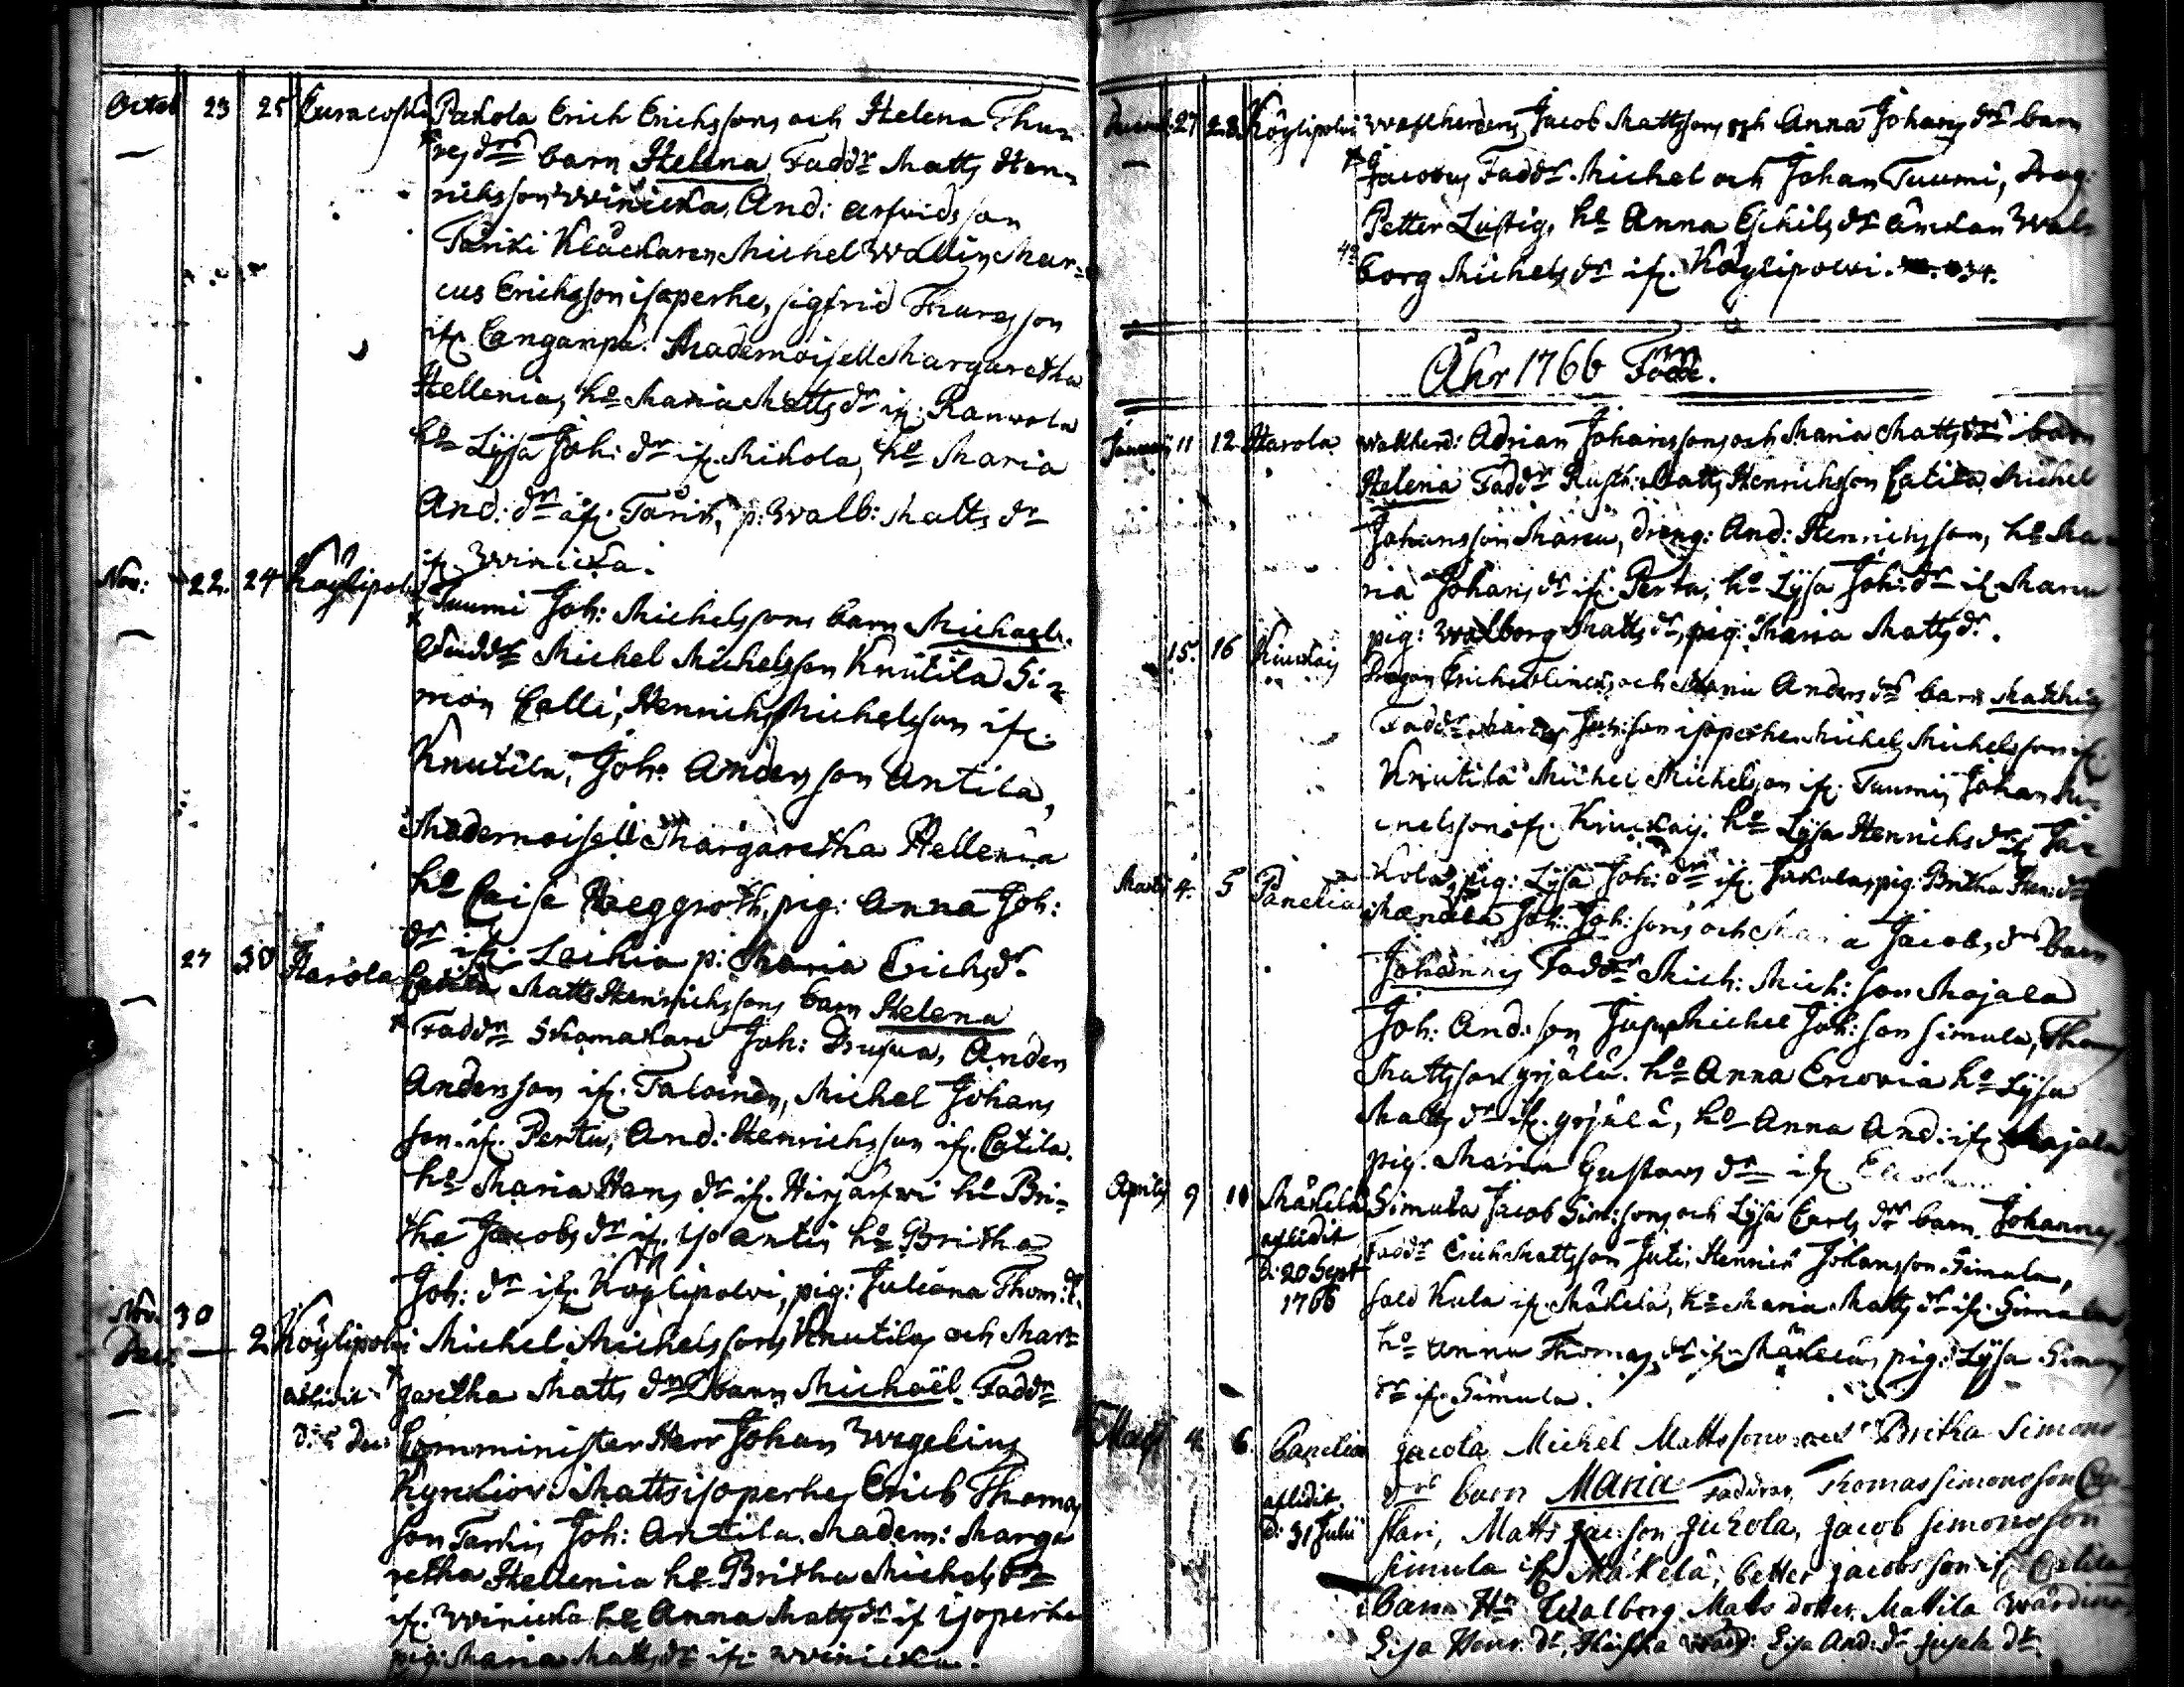 Octob 23 25 Euracoski Pakola Erich Erichssons och Helena Thu=
res drs barn Helena, Faddr Matts Hen=
richsson Winicka, And: Arfvidsson
Tänki Klåckaren Michel Wallin Mar=
cus Erichsson isoperhe, Sigfrid Thuresson
ifr. Canganpä. Mademoisell Margaretha
Hellenia, ho Maria Matts dr ifr. Ranwola
ho Lysa Joh: dr ifr. Mikola, ho Maria
And: dr ifr. p: Walb: Matts dr
ifr. Winicka.
Nov: 22. 24 Köylipol Tuumi Joh: Michelssons barn Michael.
Faddr Michel Michelsson Knutila Si=
mon Calli, Henrich Michelsson ifr.
Knutila, Joh: Andersson Antila,
Mademoisell Margaretha Hellenia
ho Caisa Heggroth, pig: Anna Joh:
dr ifr. Lechia p: Maria Erichs dr
27 30 Harola Catila Matts Henrichssons barn Helena
Faddr Skomakare Joh: Anders
Andersson ifr. Taloinen, Michel Johans
son ifr. Pertu, And: Henrichsson ifr. Catila.
ho Maria Hans dr ifr. Hirjärfwi ho Bri=
tha Jacobs dr ifr. isoantis ho Britha
Joh: dr ifr. Köylipolvi, pig: Juliana Thom: dr.
Nov. 30
Dec: — 2 Köylipolvi Michel Michelssons Knutila och Mar=
aflidit garetha Matts drs barn Michaël Faddr
d: Dec: Comminister Herr Johan Wegelius
Matts isoperhe, Erich Thomas
son Tarkis Joh: Antila. Madem: Marga
retha Hellenia ho Britha Michels dr
ifr. Winicka ho Anna Matts dr if isoperhe
pig: Maria Matts dr ifr Winicka.
Decemb. 27 28. Köylipolvi Wallherdens Jacob Mattssons och Anna Johans drs barn
Jacobus Faddr. Michel och Johan Tuumi, Drag:
Petter Lustig, ho Anna Eskils dr änckan Wal=
borg Michels dr ifr. Köylipolvi. 34.
Åhr 1766 Födde.
Januarij 11 12 Harola Wallherd: Adrian Johanssons och Maria Matts drs barn
Helena Faddr Rusth: Matts Henrichsson Catila, Michel
Johansson Manu, dreng: And: Henrichsson, ho Ma=
ria Johans dr ifr. Pertu, ho Lysa Joh: dr if. Manu
pig: Walborg Matts dr, pig: Maria Matts dr.
15. 16 Kiuckais Dragon Erich Flincks och Maria Anders drs barn Matthias
Faddr Joh: son isoperhe, Michel Michelsson if.
Knutila Michel Michelsson ifr. Tuumi, Johan Mi=
chelsson ifr. Kiuckais, ho Lysa Henrichs dr ifr Ja=
kola, pig: Lysa Joh: dr ifr. Jakola, pig: Britha Hen: dr
Martij 4. 5 Panelia Joh: Joh: sons och Maria Jacobs drs Barn
Johannes Faddr Mich: Mich: son Majala
Joh: And: son Michel Joh: son Simula, Thom
Mattsson yrjälä. ho Anna Enovia ho Lysa
Matts dr ifr. yrjälä, ho Anna And: ifr Majala
pig. Maria Gustavs dr ifr
Aprilis 9 10 Mäkelä Simula Jacob Sim: sons och Lysa Carls drs barn Johannes
aflidit Faddr Erich Mattsson Juti, Henrich Johansson Simula,
d: 20 Sept Kula ifr. Mäkelä, ho Maria Matts dr ifr. Simula
1766 ho Anna Thomas dr ifr Mäkelä, pig: Lysa Simons
dr ifr Simula.
Maij 4. 6. Panelia Jacola Michel Mattssons och Britha Simons
aflidit. drs barn Maria Faddrar, Thomas Simonsson
d: 31 Julii Matts Jac: son Juckola, Jacob Simonsson
Simula ifr Mäkelä, Petter Jacobsson if
Hu Walborg Matts dotter, Mattila
Lisa Hens: dr, Lisa And: dr Jusela dr.